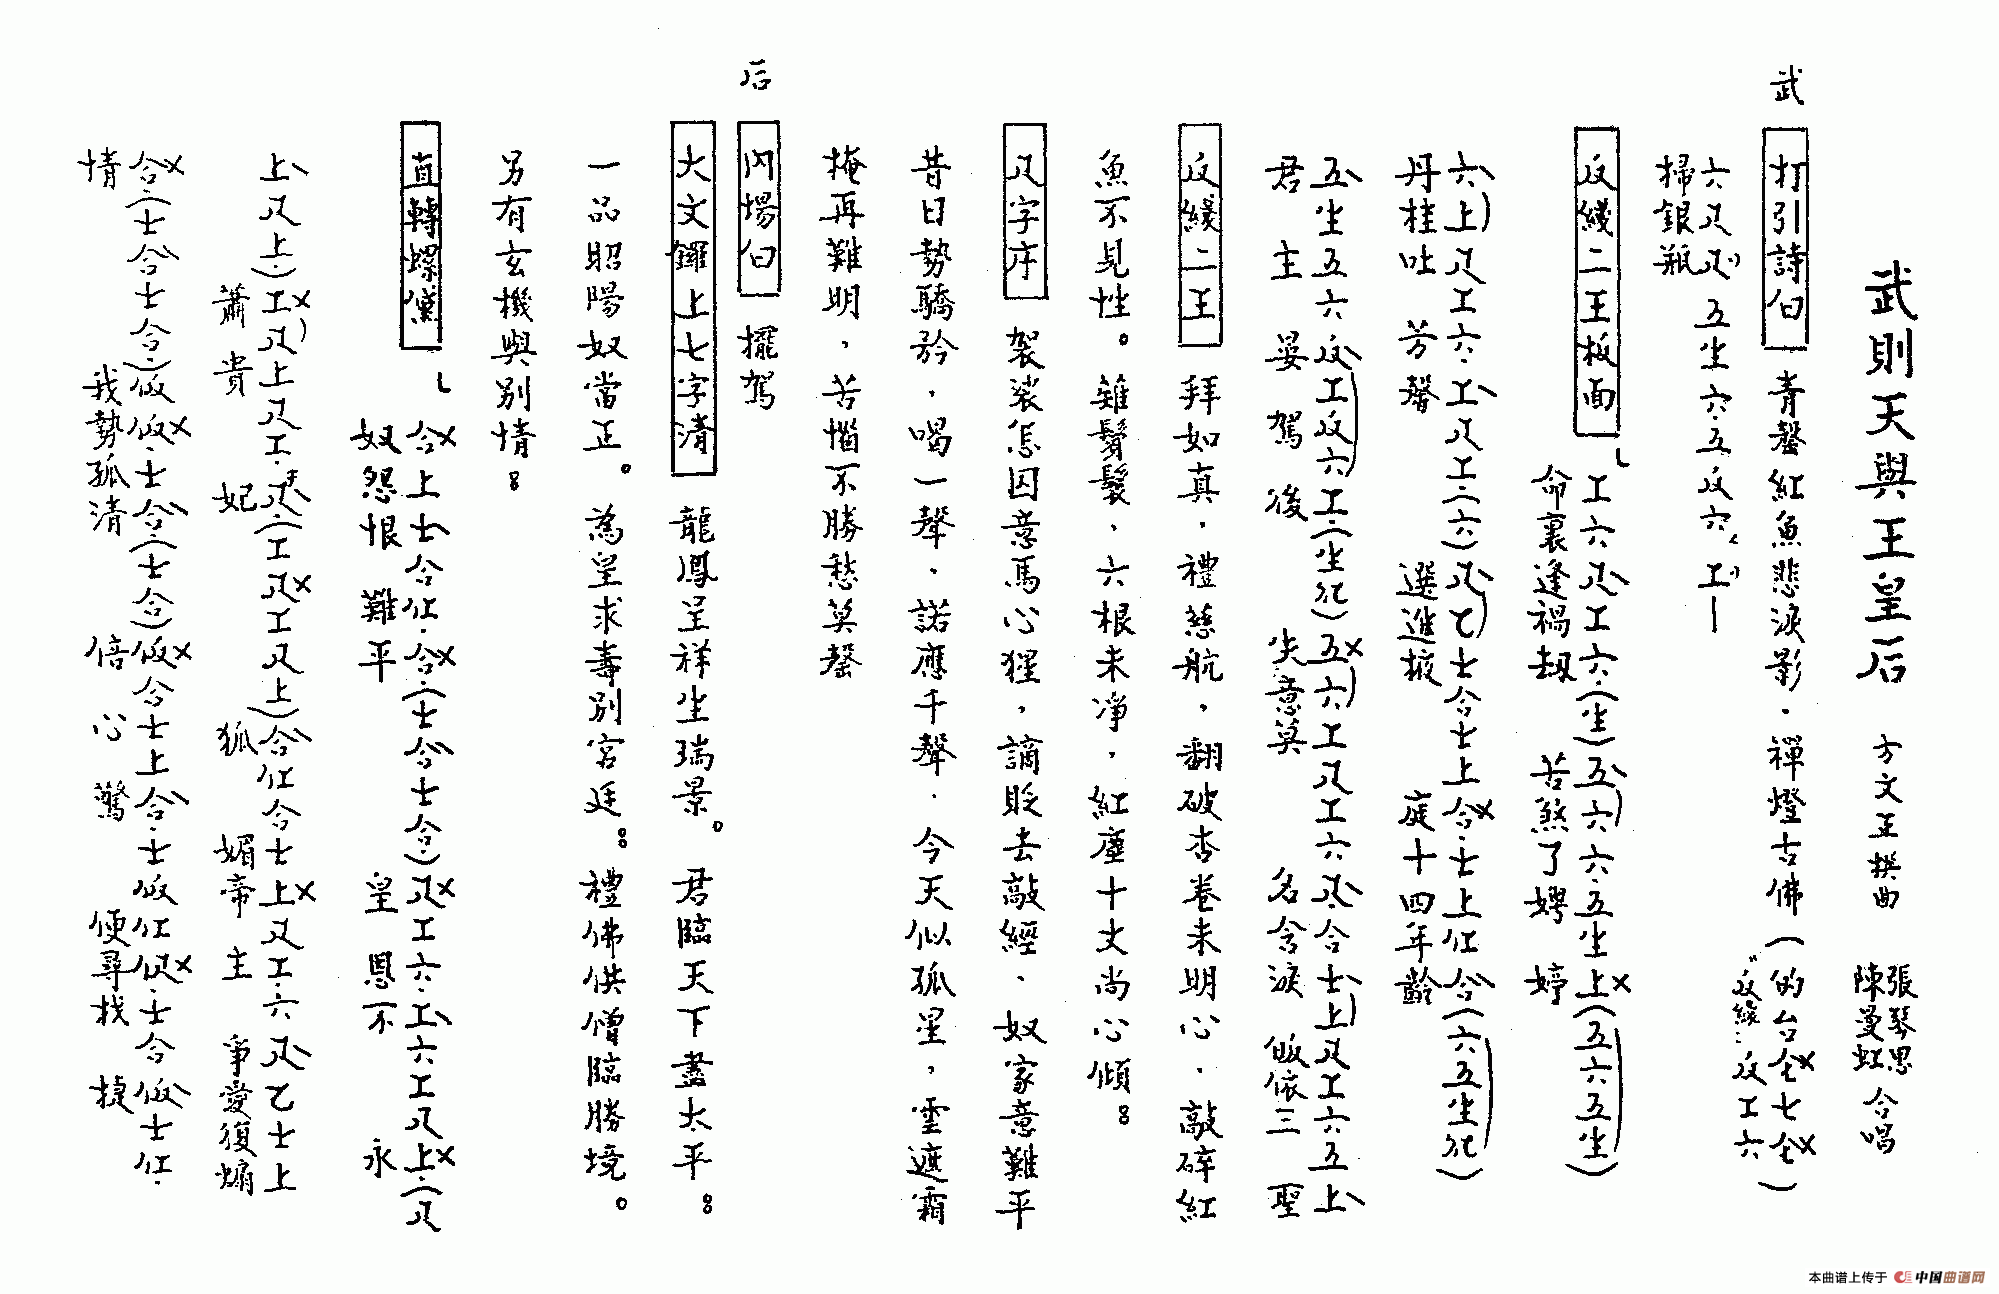 武則天與王皇后 方文正撰曲 張琴思 陳曼虹 合唱
武 打引詩白 青磬紅魚悲淚影．禪燈古佛（的台仝七仝）
"反線" 反工六
六尺尺 五生六．五反六、工—
掃銀瓶
反綫二王板面 工六尺工六．（生）五六六．五生上（五六五生）
命裏逢禍劫 苦煞了娉婷
六上尺工六．工尺工（六）尺乙士合士上合．士上仜合（六五生）
丹桂吐芳馨 選進掖庭十四年齡
五生五六反工反六工．（生）五六工尺工六尺合士上尺工六五上
君主晏駕後 失意莫名含淚皈依三聖
反綫二王 拜如真．禮慈航，翻破杏卷未明心．敲碎紅
魚不見性。雖鬢鬟、六根未凈，紅塵十丈尚心傾：
尺字序 袈裟怎囚意馬心猩，謫貶去敲經、奴家意難平
昔日勢驕矜，喝一聲、諾應千聲．今天似孤星，雲遮霜
掩再難明，苦惱不勝愁莫罄
后 內場白 擺駕
大文鑼上七字清 龍鳳呈祥坐瑞景。君臨天下盡太平：
一品昭陽奴當正。為皇求壽別宮廷：禮佛供僧臨勝境。
另有玄機與別情：
直轉 合上士合仜．合．（士合士合．）尺工六．工六工尺上（尺
奴怨恨難平 皇恩不永
上尺上）工尺上尺工．尺（工尺工尺上）合仜合士上尺工．六尺乙士上
蕭貴妃 狐媚帝主 爭愛復煽
合（士合士合．）仮仮．士合（士合）仮合士上合．士仮仜仮．士合仮士仜．
情 我勢孤清 倍心驚 便尋找捷
本曲谱上传于 中国曲谱网